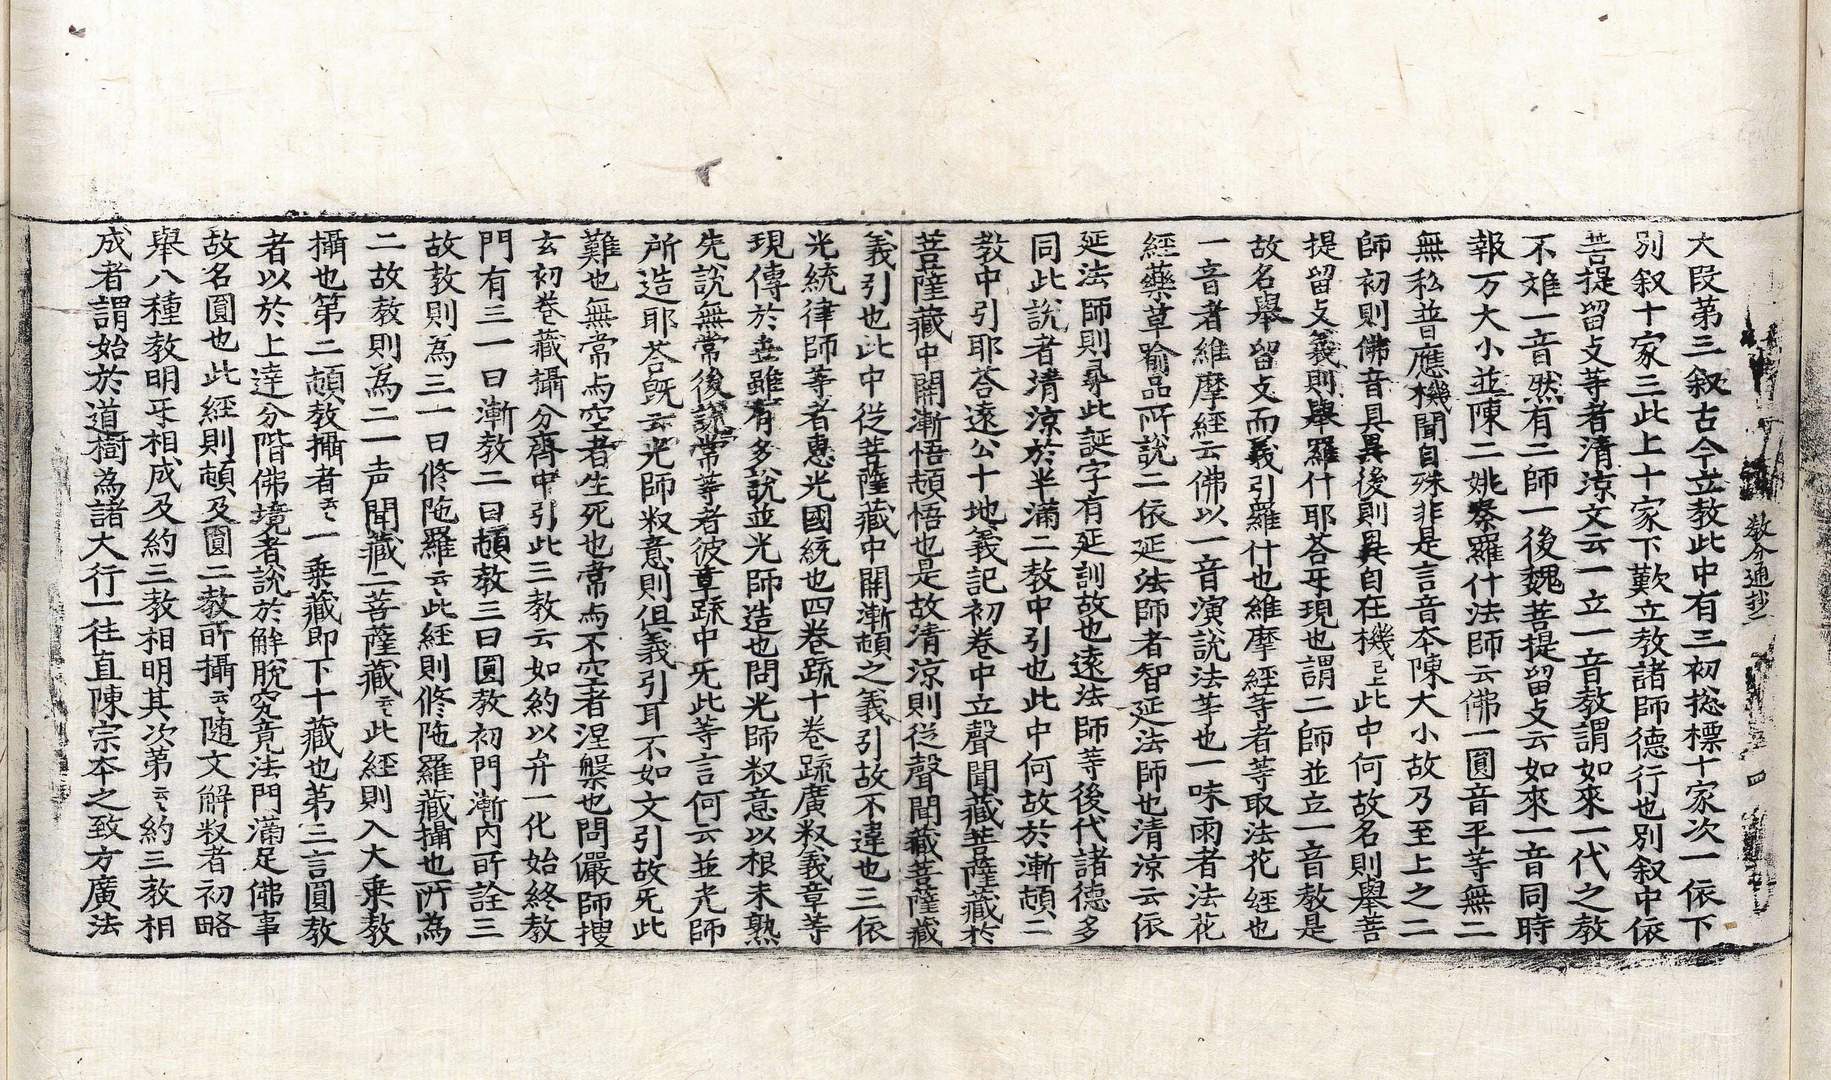 教分通抄 四
大段第三叙古今立教此中有三初捴標十家次一依下
別叙十家三此上十家下歎立教諸師德行也別叙中依
菩提留支等者清涼文云一立一音教謂如來一代之教
不䧹一音然有二師一後魏菩提留支云如來一音同時
報万大小並陳二姚秦羅什法師云佛一圓音平等無二
無私普應機聞自殊非是言音本陳大小故乃至上之二
師初則佛音具異後則異自在機已上此中何故名則舉菩
提留支義則舉羅什耶荅牙現也謂二師並立一音教是
故名舉留支而義引羅什也維摩經等者等取法花經也
一音者維摩經云佛以一音演說法䓁也一味雨者法花
經藥草喻品所說二依延法師者智延法師也清涼云依
延法師則尋此誕字有延訓故也遠法師等後代諸德多
同此說者清涼於半滿二教中引也此中何故於漸頓二
教中引耶荅遠公十地義記初卷中立聲聞藏菩薩藏於
菩薩藏中開漸悟頓悟也是故清涼則從聲聞藏菩薩藏
義引也此中從菩薩藏中開漸頓之義引故不違也三依
光統律師等者惠光國統也四卷䟽十卷䟽廣釈義章等
現傳於㐀雖有多說並光師造也問光師釈意以根未熟
先說無常後說常等者彼章䟽中旡此等言何云並光師
所造耶荅旣云光師釈意則但義引耳不如文引故旡此
難也無常与空者生死也常与不空者涅槃也問儼師搜
玄初卷藏攝分齊中引此三教云如約以弁一化始終教
門有三一曰漸教二曰頓教三曰圓教初門漸內所詮三
故教則為三一曰修陁羅云云此經則修陁羅藏攝也所為
二故教則為二一声聞藏二菩薩藏云云此經則入大乘教
攝也第二頓教攝者云云一乘藏即下十藏也第三言圓教
者以於上達分階佛境者說於解脫究竟法門滿足佛事
故名圓也此經則頓及圓二教所攝云云随文解釈者初略
舉八種教明牙相成及約三教相明其次第云云約三教相
成者謂始於道樹為諸大行一往直陳宗本之致方廣法